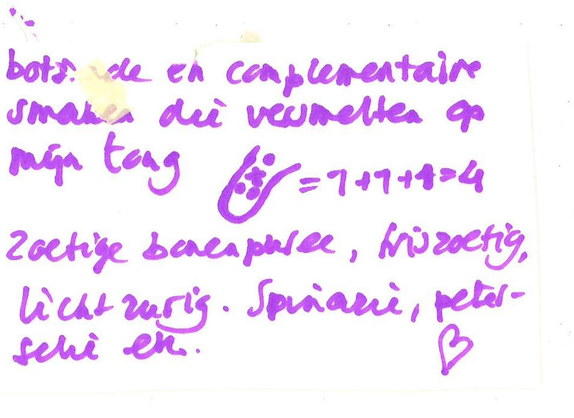 bots de en complementaire
smaken die versmelten op
mijn tong = 1+1+1=4
Zoetige bonenpuree, friszoetig,
licht zurig. Spinazie, peter-
selie en.